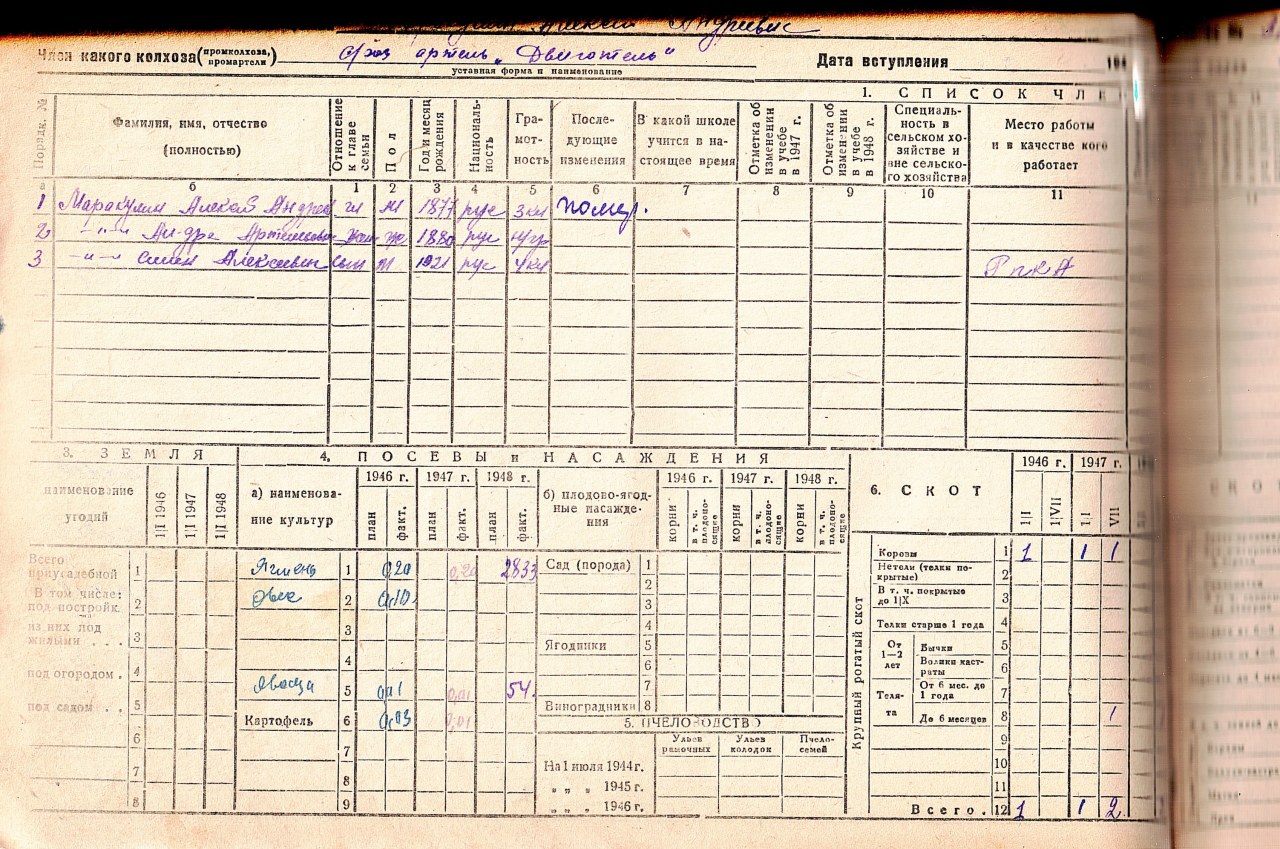 Алексей Андреевич
Член какого колхоза (промколхоза, промартели) с/хоз артель „Двигатель“
уставная форма и наименование
Дата вступления 194
1. СПИСОК ЧЛЕ
Порядк. №
Фамилия, имя, отчество (полностью)
Отношение к главе семьи
Пол
Год и месяц рождения
Националь-ность
Гра-мот-ность
После-дующие изменения
В какой школе учится в на-стоящее время
Отметка об изменении в учебе в 1947 г.
Отметка об изменении в учебе в 1948 г.
Специаль-ность в сельском хо-зяйстве и вне сельско-го хозяйства
Место работы и в качестве кого работает
а б 1 2 3 4 5 6 7 8 9 10 11
1 Маракулин Алексей Андрее гл м 1877 рус 3 кл помер.
2 -"- Артемьевн жен ж 1880 рус н/гр
3 -"- Семен Алексеевич сын м 1921 рус 4 кл РККА
3. ЗЕМЛЯ
наименование угодий
1|I 1946
1|I 1947
1|I 1948
Всего приусадебной 1
В том числе: под постройк. 2
из них под жилыми . . . 3
под огородом . 4
под садом . . 5
6
7
8
4. ПОСЕВЫ и НАСАЖДЕНИЯ
а) наименова-ние культур
1946 г. 1947 г. 1948 г.
план факт. план факт. план факт.
Ячмень 1 0,20 0,20 2833
Овес 2 0,10
3
4
5 0,01 0,01 54.
Картофель 6 0,03 0,01
7
8
9
б) плодово-ягод-ные насажде-ния
1946 г. 1947 г. 1948 г.
корни в т. ч. плодоно-сящие корни в т. ч. плодоно-сящие корни в т. ч. плодоно-сящие
Сад (порода) 1
2
3
4
Ягодники 5
6
7
Виноградники 8
5. ПЧЕЛОВОДСТВО
Ульев рамочных
Ульев колодок
Пчело-семей
На 1 июля 1944 г.
„ „ „ 1945 г.
„ „ „ 1946 г.
6. СКОТ
1946 г. 1947 г.
1|I 1|VII 1|I VII
Крупный рогатый скот
Коровы 1 1 1 1
Нетели (телки по-крытые) 2
В т. ч. покрытые до 1|X 3
Телки старше 1 года 4
От 1—2 лет
Бычки 5
Волики каст-раты 6
Теля-та
От 6 мес. до 1 года 7
До 6 месяцев 8 1
9
10
11
Всего . 12 1 1 2